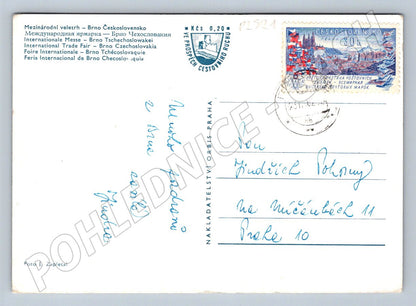 Mezinárodní veletrh – Brno Československo
Международная ярмарка — Брно Чехословакия
Internationale Messe – Brno Tschechoslowakei
International Trade Fair – Brno Czechoslovakia
Foire Internationale – Brno Tchécoslovaquie
Feria Internacional de Brno Checoslovaquia
Kčs 0,20
VE PROSPĚCH CESTOVNÍHO RUCHU
12521
ČESKOSLOVENSKO
Mnoho pozdravů
z Brna
Jindra
NAKLADATELSTVÍ ORBIS PRAHA
Pan
Jindřich Pokorný
Na Míčánkách 11
Praha 10
POHLEDNICE